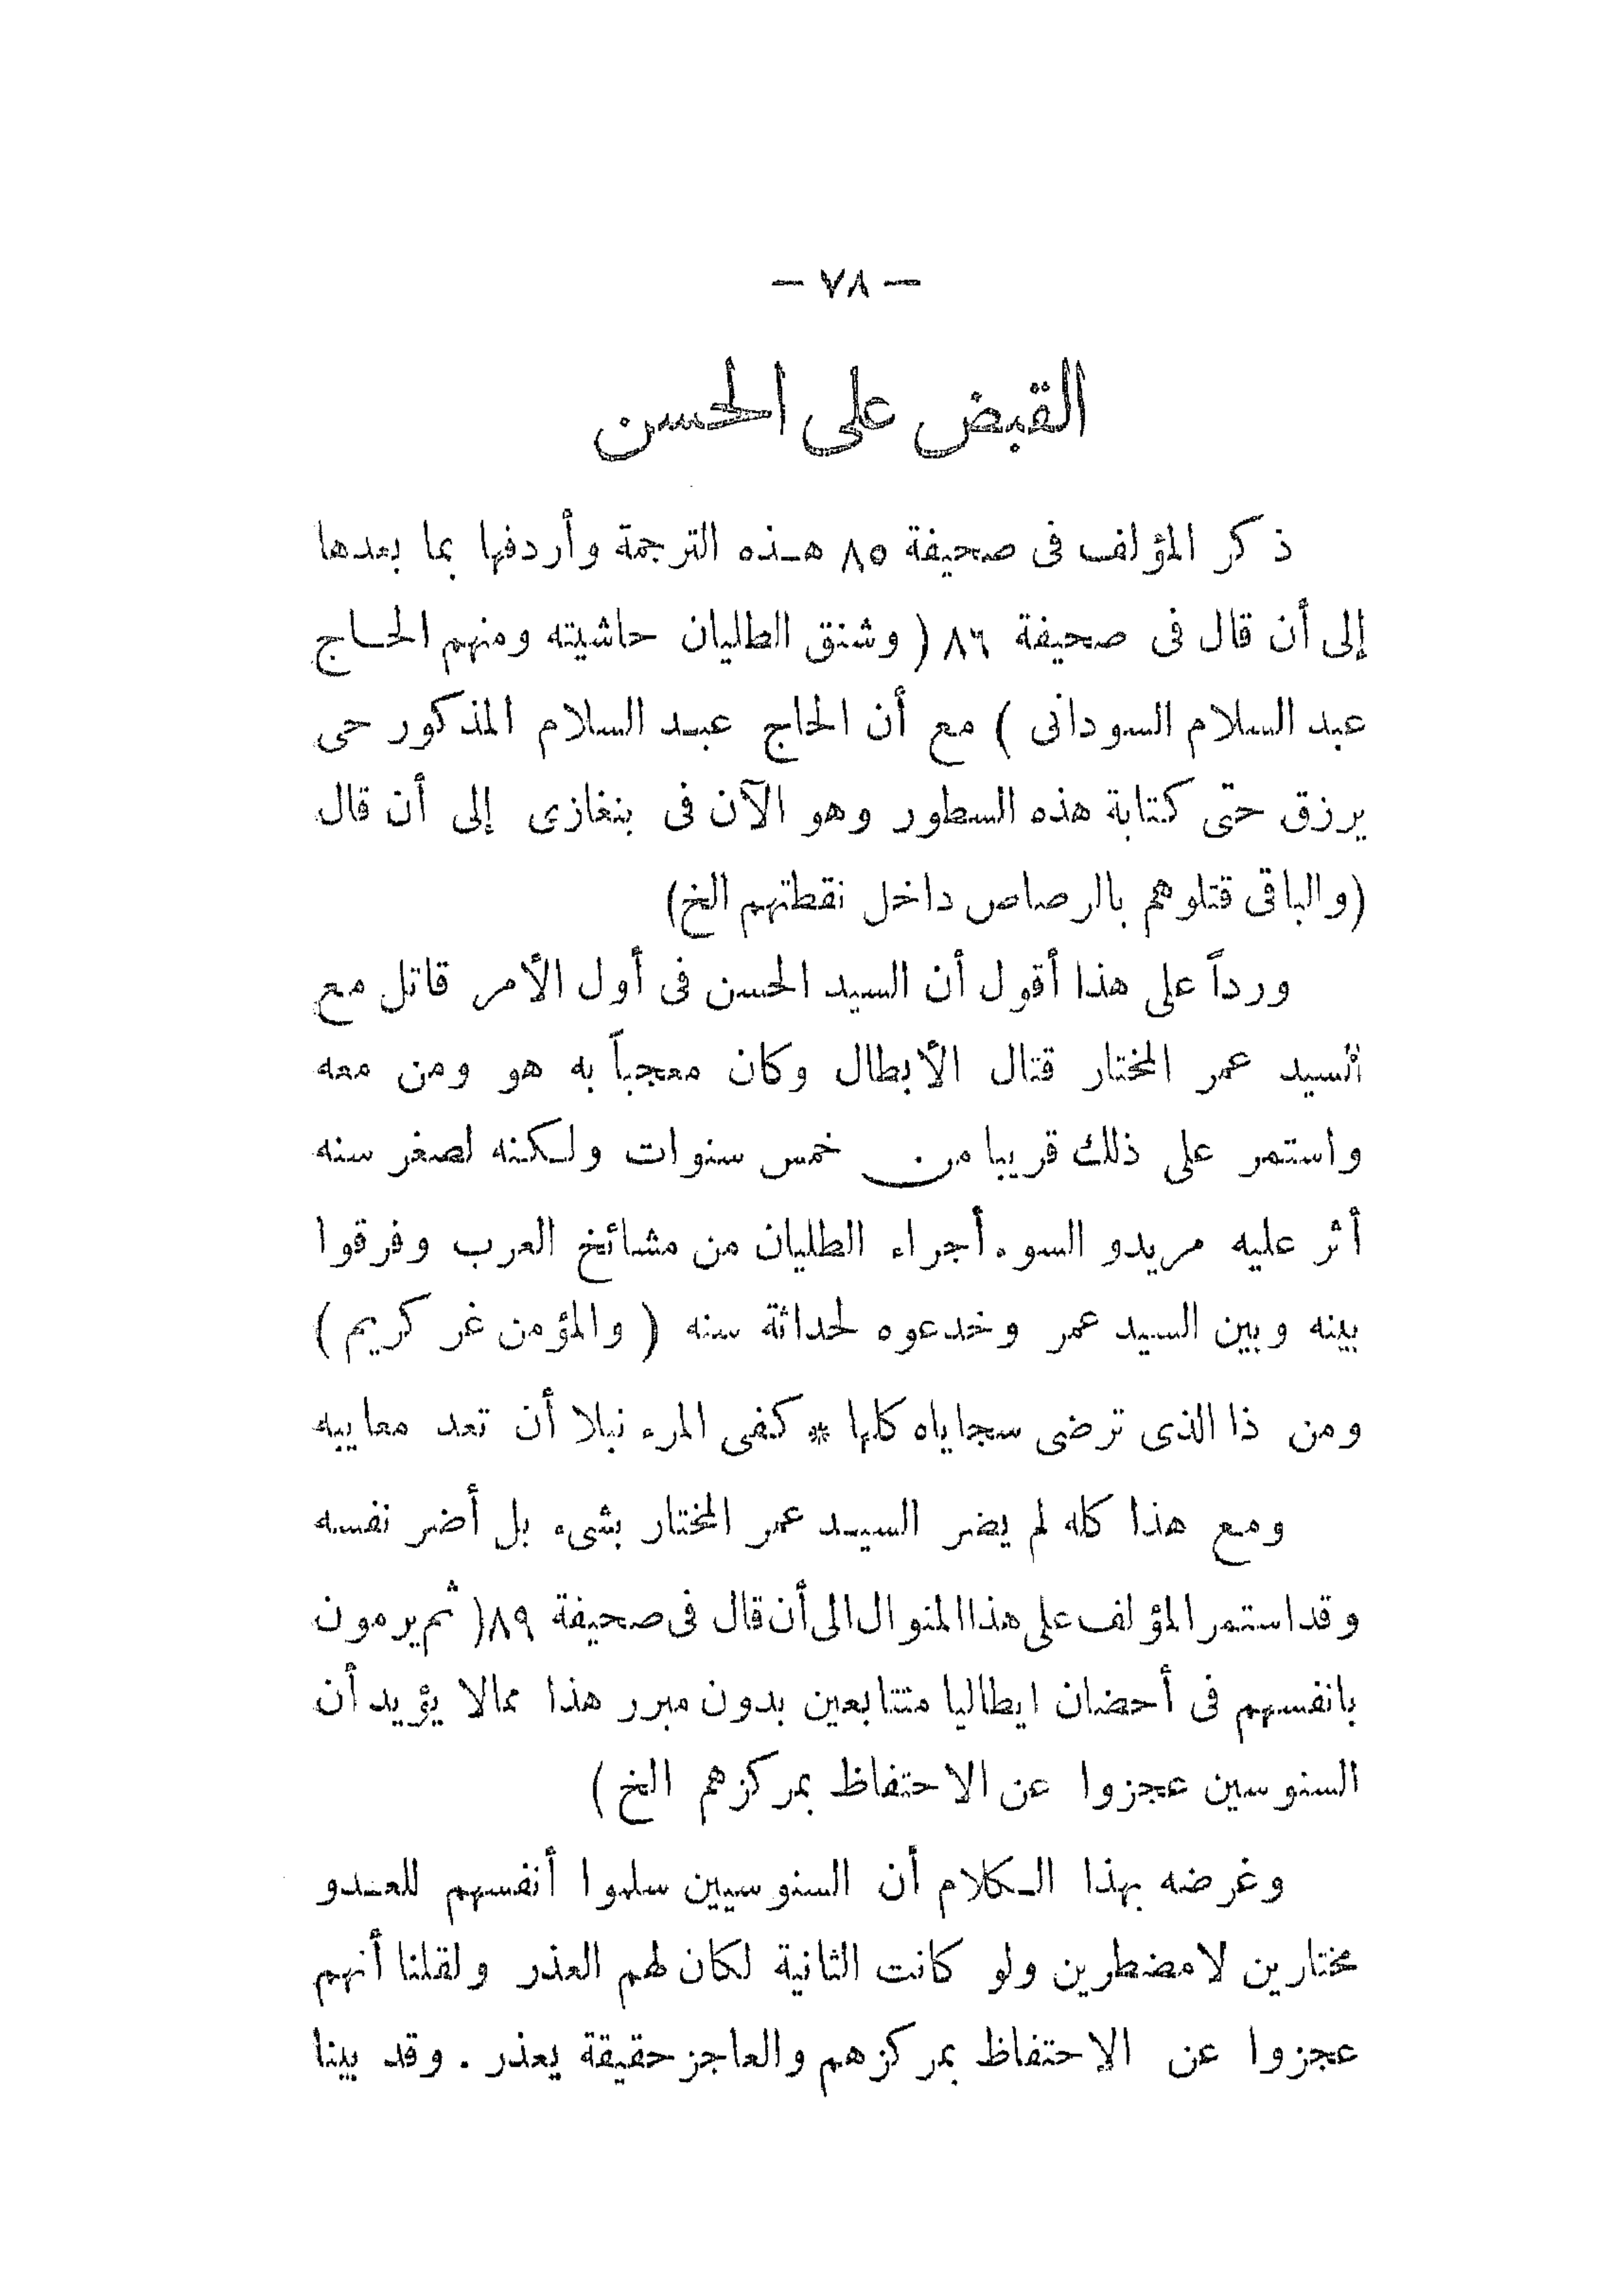 — ٧٨ —
القبض على الحسن
ذكر المؤلف فى صحيفة ٨٥ هذه الترجمة وأردفها بما بعدها
إلى أن قال فى صحيفة ٨٦ ( وشنق الطليان حاشيته ومنهم الحاج
عبد السلام السودانى ) مع أن الحاج عبد السلام المذكور حى
يرزق حتى كتابة هذه السطور وهو الآن فى بنغازى إلى أن قال
(والباقى قتلوهم بالرصاص داخل نقطتهم الخ)
ورداً على هذا أقول أن السيد الحسن فى أول الأمر قاتل مع
السيد عمر المختار قتال الأبطال وكان معجباً به هو ومن معه
واستمر على ذلك قريبا من خمس سنوات ولكنه لصغر سنه
أثر عليه مريدو السوء أجراء الطليان من مشائخ العرب وفرقوا
بينه وبين السيد عمر وخدعوه لحداثة سنه ( والمؤمن غر كريم )
ومن ذا الذى ترضى سجاياه كلها * كفى المرء نبلا أن تعد معاييه
ومع هذا كله لم يضر السيد عمر المختار بشىء بل أضر نفسه
وقد استمر المؤلف على هذا المنوال الى أن قال فى صحيفة ٨٩( ثم يرمون
بانفسهم فى أحضان ايطاليا متتابعين بدون مبرر هذا ممالا يؤيد أن
السنوسين عجزوا عن الاحتفاظ بمركزهم الخ )
وغرضه بهذا الكلام أن السنوسيين سلموا أنفسهم للعدو
مختارين لا مضطرين ولو كانت الثانية لكان لهم العذر ولقلنا أنهم
عجزوا عن الاحتفاظ بمركزهم والعاجز حقيقة يعذر . وقد بينا